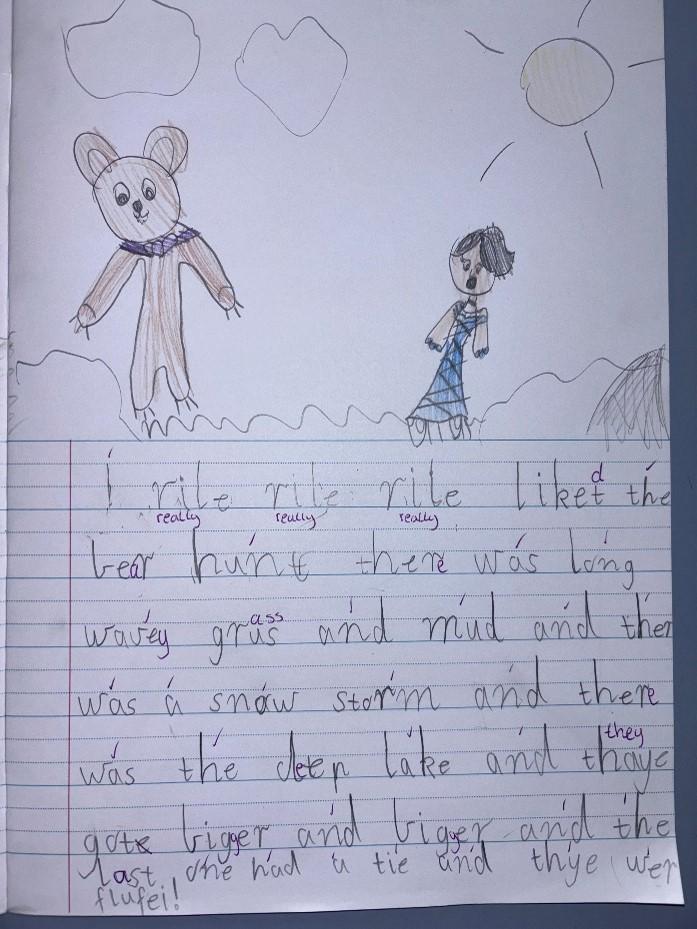 I rile rile rile liket d the
really really really
bear hunt there was long
wavey grus ass and mud and ther
was a snow storm and there
was the deep lake and thaye they
gote bigger and bigger and the
last one had a tie and thye wer
flufei!